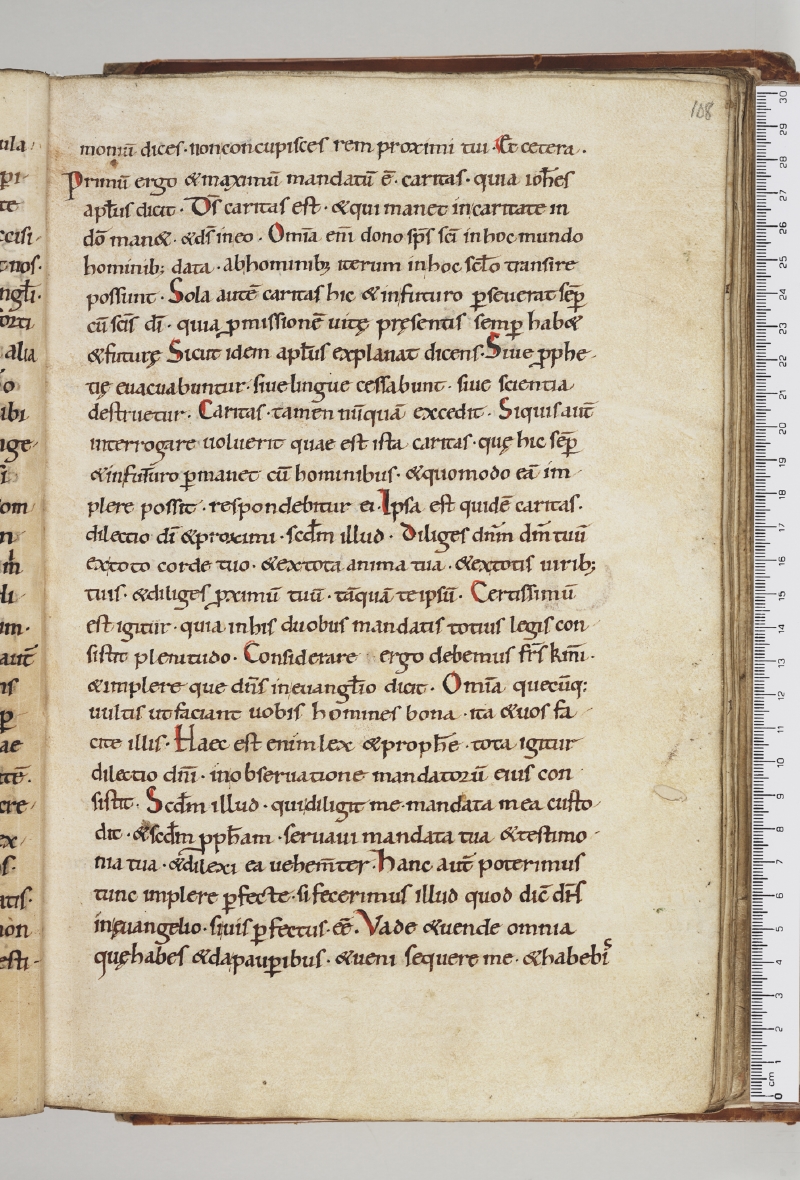 108
moniū dices · non concupisces rem proximi tui · Et cetera .
Primū ergo & maximū mandatū ē · caritas · quia ioħes
apłus dicit · D̄s caritas est · & qui manet in caritate in
dō man& · & ds̄ in eo · Omīa enī dono sp̄s sc̄i in hoc mundo
hominib; data · ab hominib; iterum in hoc scło transire
possunt · Sola autē caritas hic & in futuro p̱seuerat sēp̱
cū sc̄is dī · quia p̱missionē uitę pręsentis semp̱ hab&
& futurę Sicut idem apłus explanat dicens · Siue p̱phe-
tię euacuabuntur · siue lingue cessabunt · siue scientia
destruetur · Caritas · tamen nūquā excedit · Siquis aut̄
interrogare uoluerit quae est ista caritas · quę hic sēp̱
& in futuro p̱manet cū hominibus · & quomodo eā im
plere possit · respondebitur ei · Ipsa est quidē caritas ·
dilectio dī & proximi · scđm illud · Diliges dn̄m dm̄ tuū
ex toto corde tuo · & ex tota anima tua · & ex totis uirib;
tuis · & diliges p̱ximū tuū · tāquā te ipsū · Certissimū
est igitur · quia in his duobus mandatis totius legis con
sistit plenitudo · Considerare ergo debemus fr̄s km̄i ·
& implere que dn̄s in euangłio dicit · Omīa quecūq;
uultis ut faciant uobis homines bona · ita & uos fa
cite illis · Haec est enim lex & propħe · tota igitur
dilectio dn̄i · in obseruatione mandatorū eius con
sistit · Scđm illud · qui diligit me · mandata mea custo
dit · & scđm p̱pħam · seruaui mandata tua & testimo
nia tua · & dilexi ea uehem̄ter · hanc aut̄ poterimus
tunc implere p̱fecte · si fecerimus illud quod dic̄ dn̄s
in euangelio · si uis p̱fectus · eē · Vade & uende omnia
quę habes & da paup̱ibus · & ueni sequere me · & habebi᷒